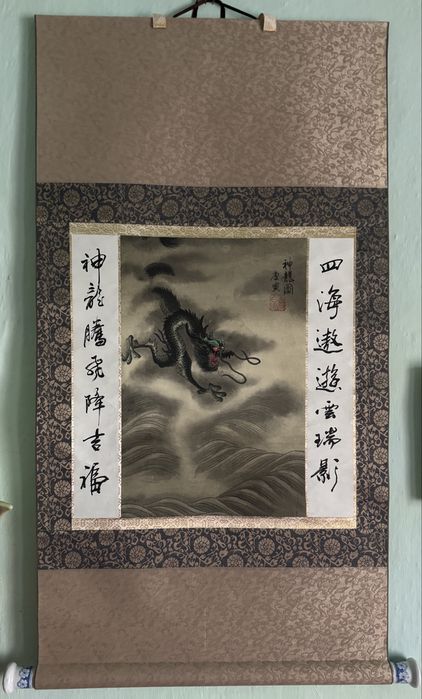 四海遨遊雲瑞影
神龍圖
唐寅
神龍騰飛降吉福